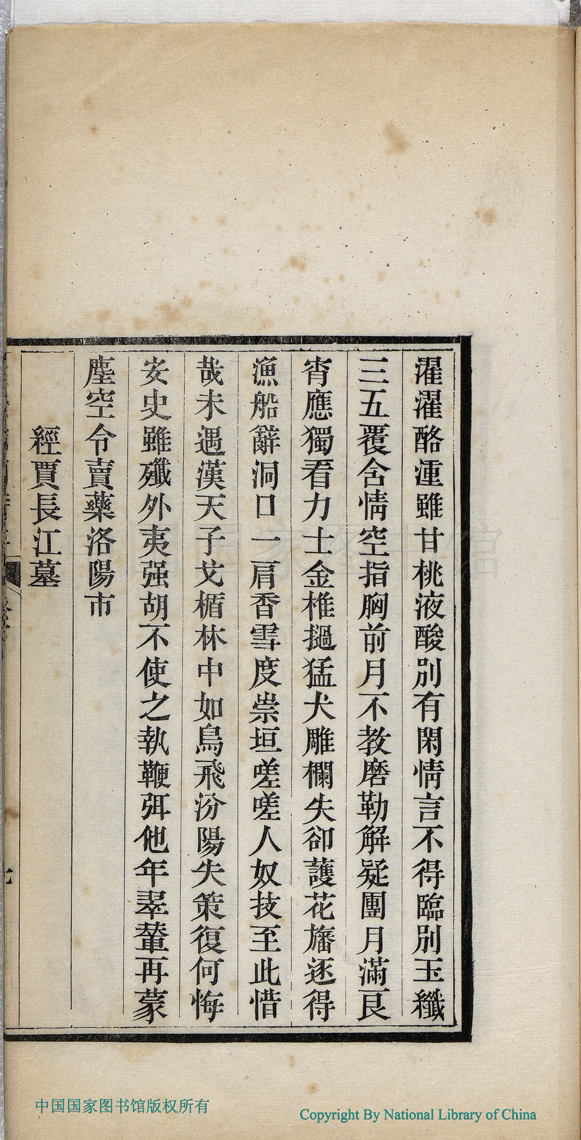 濯濯酪湩雖甘桃液酸別有閑情言不得臨別玉纖
三五覆含情空指胸前月不教磨勒解疑團月滿良
宵應獨看力士金椎撾猛犬雕欄失卻護花旛逐得
漁船辭洞口一肩香雪度崇垣嗟嗟人奴技至此惜
哉未遇漢天子戈楯林中如鳥飛汾陽失策復何悔
安史雖殲外夷强胡不使之執鞭弭他年翠輦再蒙
塵空令賣藥洛陽市
經賈長江墓
七
中国国家图书馆版权所有
Copyright By National Library of China